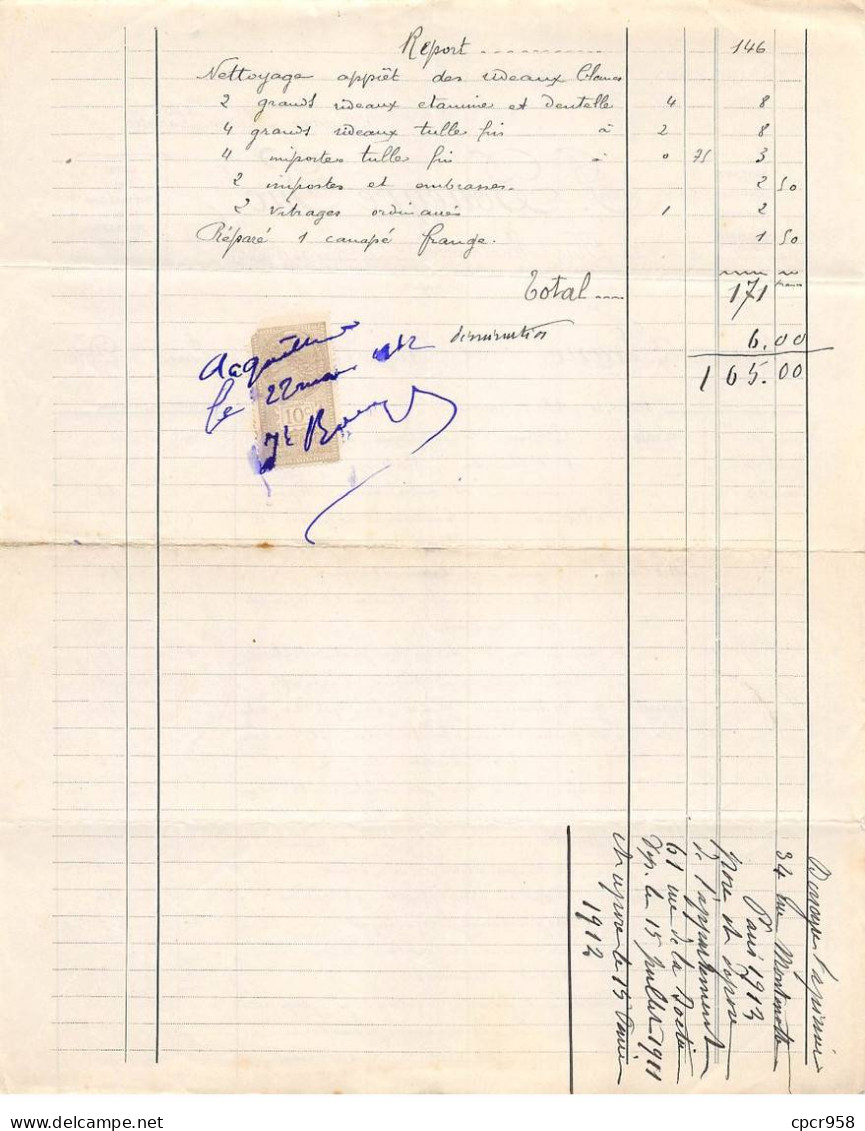 Report ........... 146
Nettoyage apprêt des rideaux blancs
2 grands rideaux etamine et dentelle 4 8
4 grands rideaux tulle fin à 2 8
4 impostes tulle fin à 0 75 3
2 impostes et embrasses. 2 50
2 vitrages ordinaires 1 2
Réparé 1 canapé frange. 1 50
Total .... 171
diminution 6.00
165.00
le 22 mars 1912
10c
34 rue
Paris 1913
pose et dépose
de l'appartement
61 rue de la
dép. le 15 juillet 1911
et repose le 15
1912
cpcr958